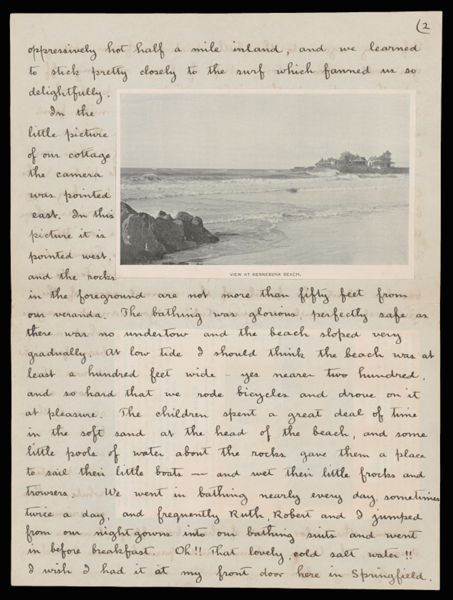 (2
oppressively hot half a mile inland, and we learned
to stick pretty closely to the surf which fanned us so
delightfully.
In the
little picture
of our cottage
the camera
was pointed
east. In this
picture it is
pointed west,
and the rocks
VIEW AT KENNEBUNK BEACH.
in the foreground are not more than fifty feet from
our veranda. The bathing was glorious, perfectly safe as
there was no undertow and the beach sloped very
gradually. At low tide I should think the beach was at
least a hundred feet wide - yes nearer two hundred,
and so hard that we rode bicycles and drove on it
at pleasure. The children spent a great deal of time
in the soft sand at the head of the beach, and some
little pools of water about the rocks gave them a place
to sail their little boats — and wet their little frocks and
trousers. We went in bathing nearly every day, sometimes
twice a day, and frequently Ruth, Robert and I jumped
from our nightgowns into our bathing suits and went
in before breakfast. Oh!! That lovely, cold salt water!!
I wish I had it at my front door here in Springfield.